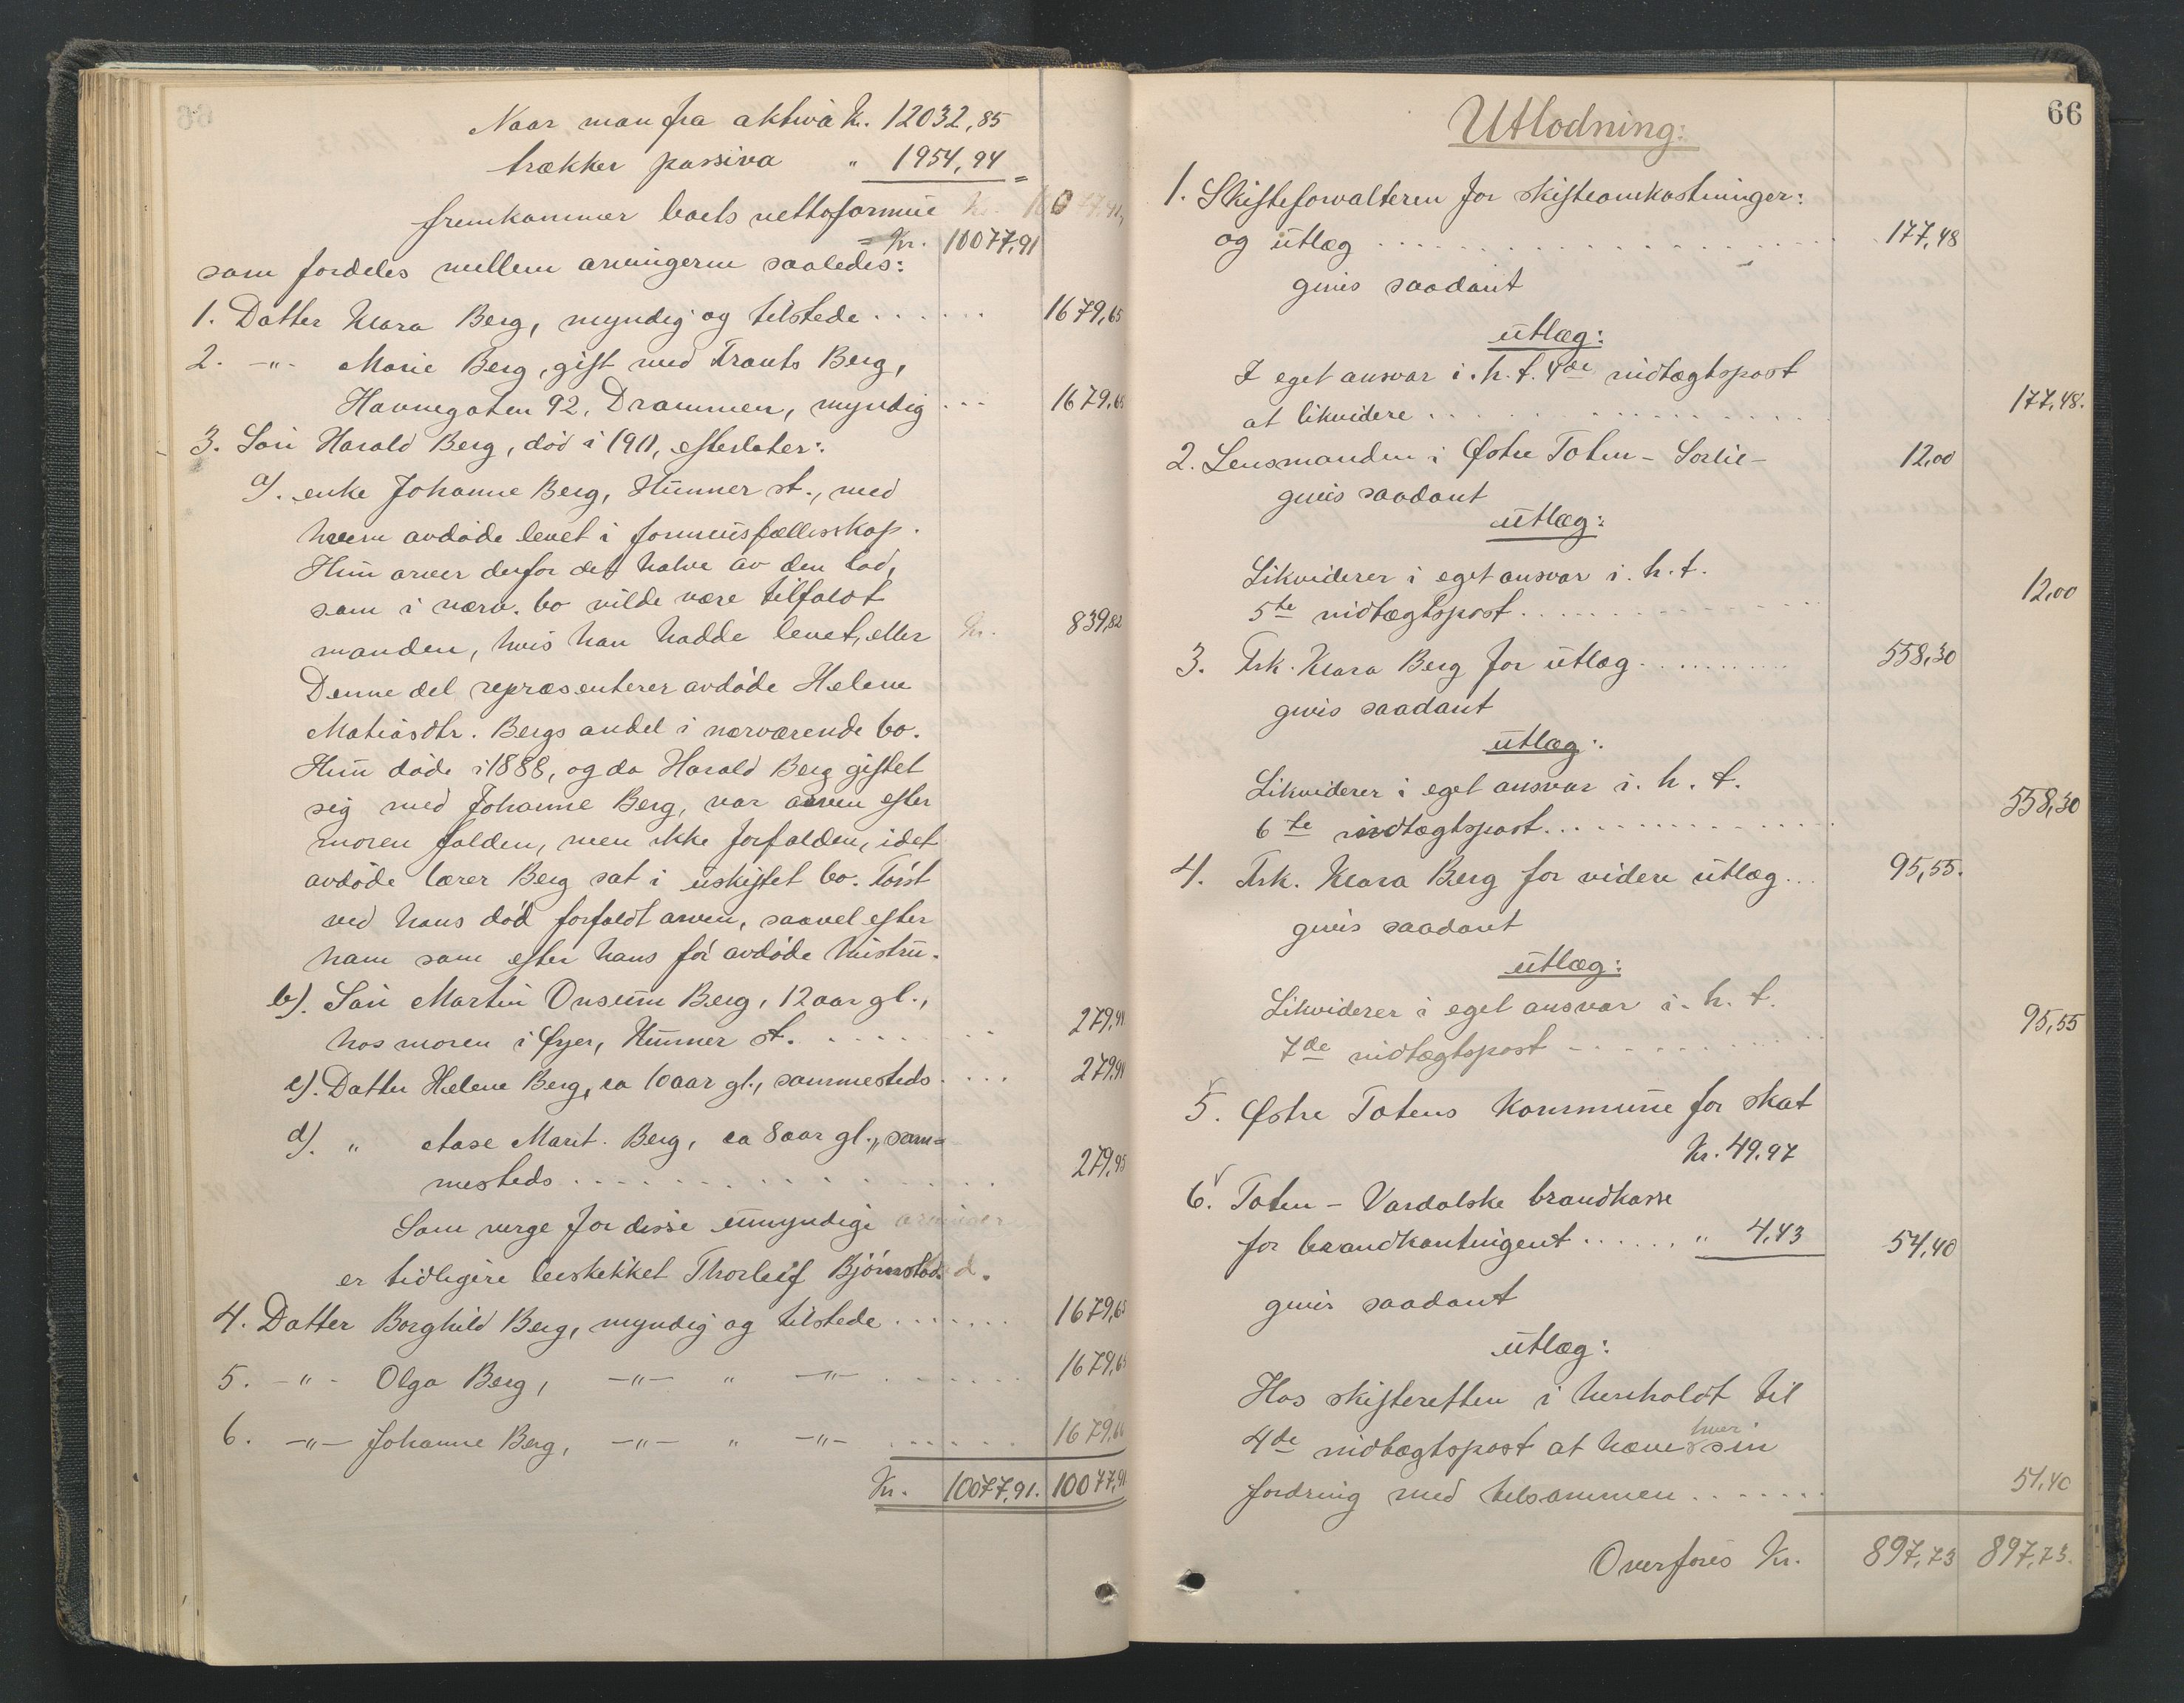 Naar man fra aktiva kr. 12032,85
trækker passiva " 1954,94
fremkommer boets nettoformue
= Kr. 10077,91
som fordeles mellem arvingerne saaledes:
1. Datter Klara Berg, myndig og tilstede ...... 1679,65
2. -"- Marie Berg, gift med Frants Berg,
Havnegaten 92, Drammen, myndig ... 1679,65
3. Søn Harald Berg, død i 1911, efterlater:
a). enke Johanne Berg, Hunner st., med
hvem avdøde levet i formuesfællesskap.
Hun arver derfor det halve av den lod,
som i nærv. bo vilde være tilfaldt
manden, hvis han hadde levet, eller kr. 839,82
Denne del repræsenterer avdøde Helene
Matiasdtr. Bergs andel i nærværende bo.
Hun døde i 1888, og da Harald Berg giftet
sig med Johanne Berg, var arven efter
moren falden, men ikke forfalden, idet
avdøde lærer Berg sat i uskiftet bo. Først
ved hans død forfaldt arven, saavel efter
ham som efter hans før avdøde hustru.
b). Søn Martin Onsum Berg, 12 aar gl.,
hos moren i Øyer, Hunner st. ...... 279,94
c). Datter Helene Berg, ca 10 aar gl., sammesteds .... 279,94
d). " Aase Marit. Berg, ca 8 aar gl., sam=
mesteds .............. 279,95
Som verge for disse umyndige arvinger
er tidligere beskikket Thorleif Bjørnstad.
4. Datter Borghild Berg, myndig og tilstede ....... 1679,65
5. -"- Olga Berg, -"- " -"- ....... 1679,65
6. -"- Johanne Berg, -"- " -"- ...... 1679,66
Kr. 10077,91. 10077,91
66
Utlodning:
1. Skifteforvalteren for skifteomkostninger:
og utlæg .................. 177,48
givis saadant
utlæg:
I eget ansvar i. h. t. 4de indtægtspost
at likvidere .................. 177,48.
2. Lensmanden i Østre Toten - Sørlie - 12,00
givis saadant
utlæg:
Likviderer i eget ansvar i. h. t.
5te indtægtspost .............. 12,00
3. Frk. Klara Berg for utlæg .......... 558,30
givis saadant
utlæg:
Likviderer i eget ansvar i. h. t.
6te indtægtspost .............. 558,30
4. Frk. Klara Berg for videre utlæg ... 95,55.
givis saadant
utlæg:
Likviderer i eget ansvar i. h. t.
7de indtægtspost - .......... 95,55
5. Østre Totens Kommune for skat
Kr. 49,97
6. Toten - Vardalske brandkasse
for brandkontingent ...... " 4,43 54,40
givis saadant
utlæg:
Hos skifteretten i henhold til
4de indtægtspost at hæve hver sin
fordring med tilsammen ....... 54,40
Overføres Kr. 897,73 897,73.